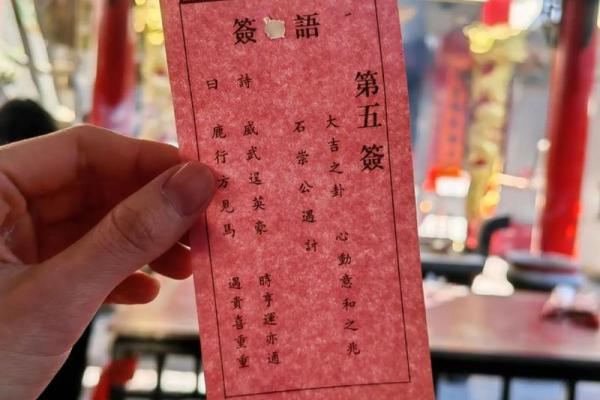 簽語
第五簽
大吉之卦 心動意和之兆
石崇公遇計
詩曰
威武逞英豪 時亨運亦通
鹿行方見馬 遇貴喜重重